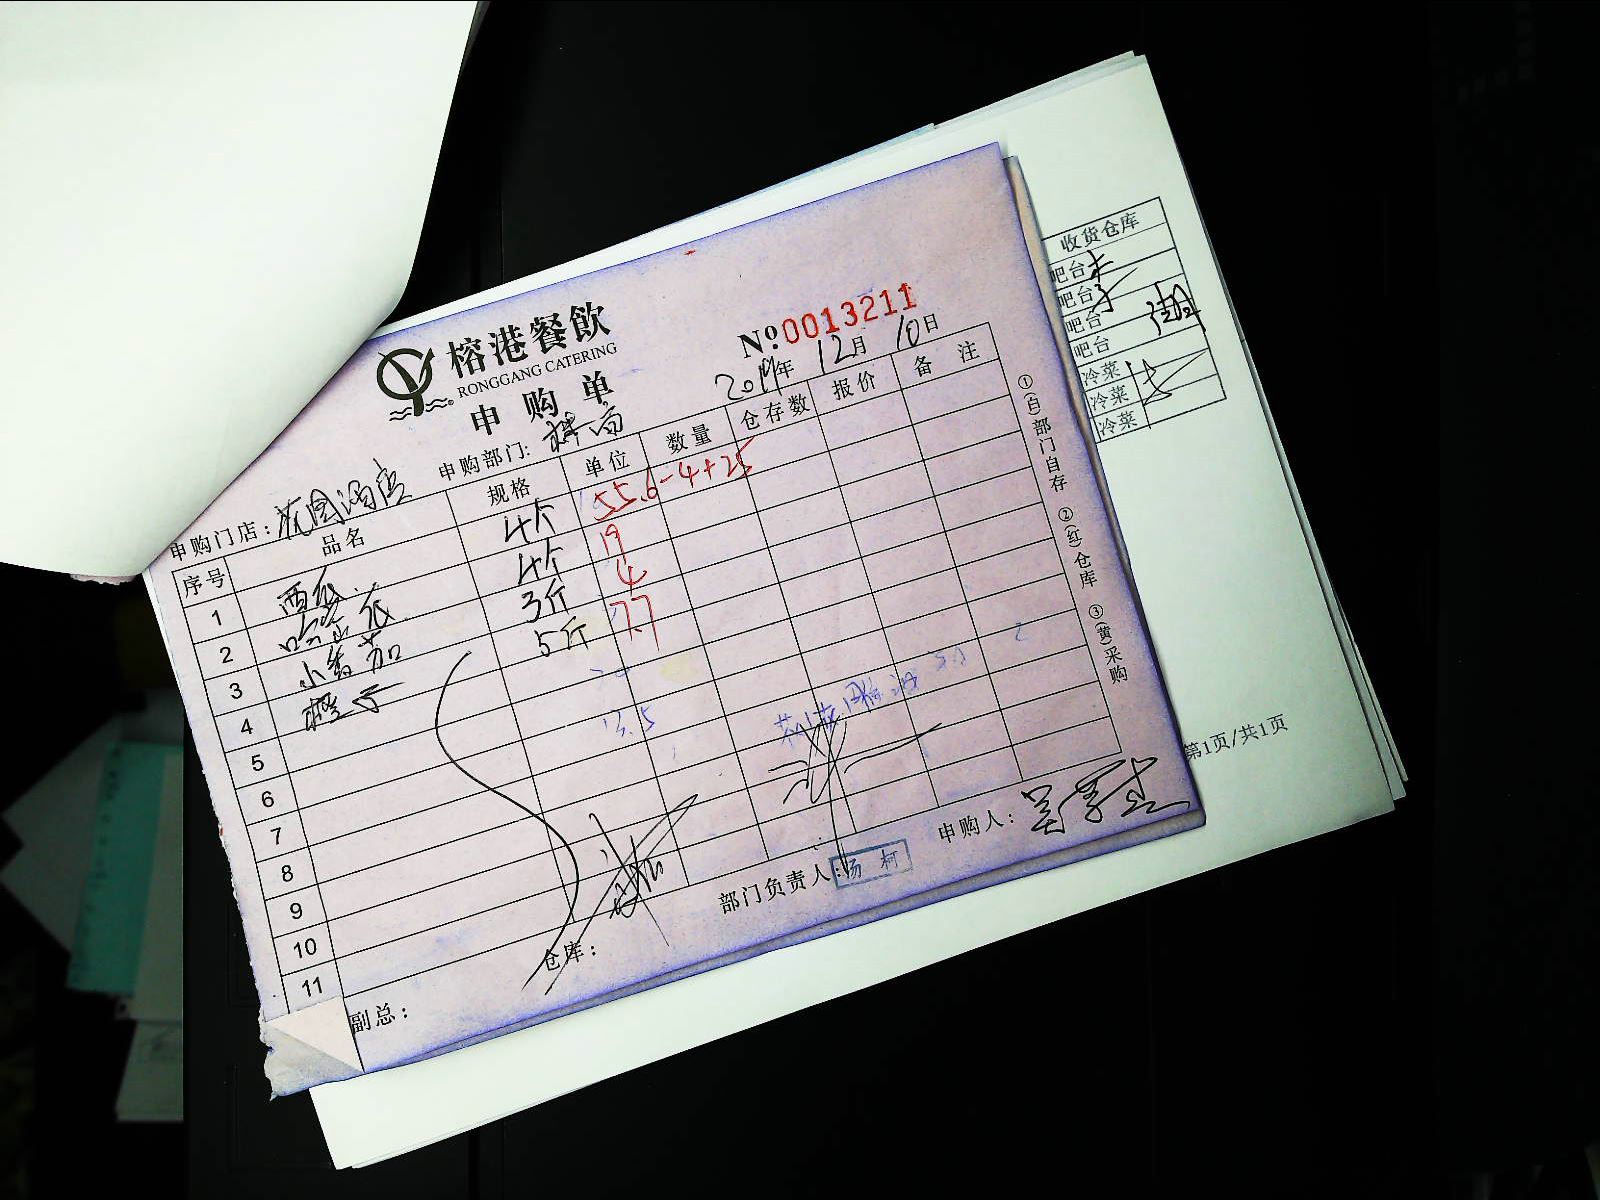 榕港餐飲
RONGGANG CATERING
申购单
№0013211
2019年 12月 10日
申购门店：花园酒店 申购部门：
序号 品名 规格 单位 数量 仓存数 报价 备 注
1 西瓜 4个 55.6-4+25
2 哈密瓜 4个 19
3 小番茄 3斤 4
4 橙子 5斤 7.7
5
6 13.5
7
8
9
10
11
副总： 仓库： 部门负责人：杨 柯 申购人：
①(白)部门自存 ②(红)仓库 ③(黄)采购
收货仓库
吧台
吧台
吧台
吧台
冷菜
冷菜
冷菜
第1页/共1页